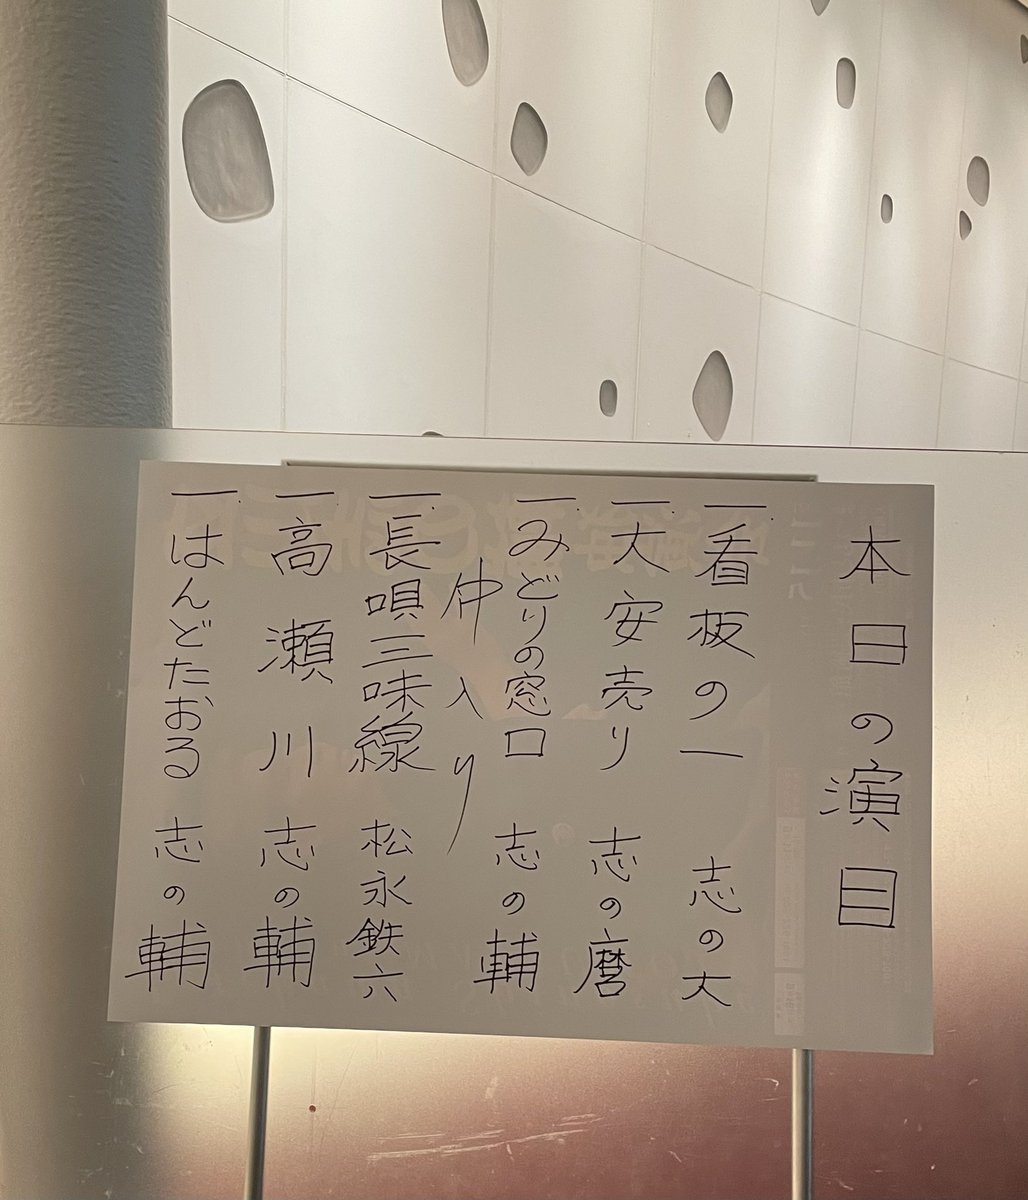 本日の演目
一、看板の一 志の大
一、大安売り 志の麿
一、みどりの窓口 志の輔
仲入り
一、長唄三味線 松永鉄六
一、高瀬川 志の輔
一、はんどたおる 志の輔